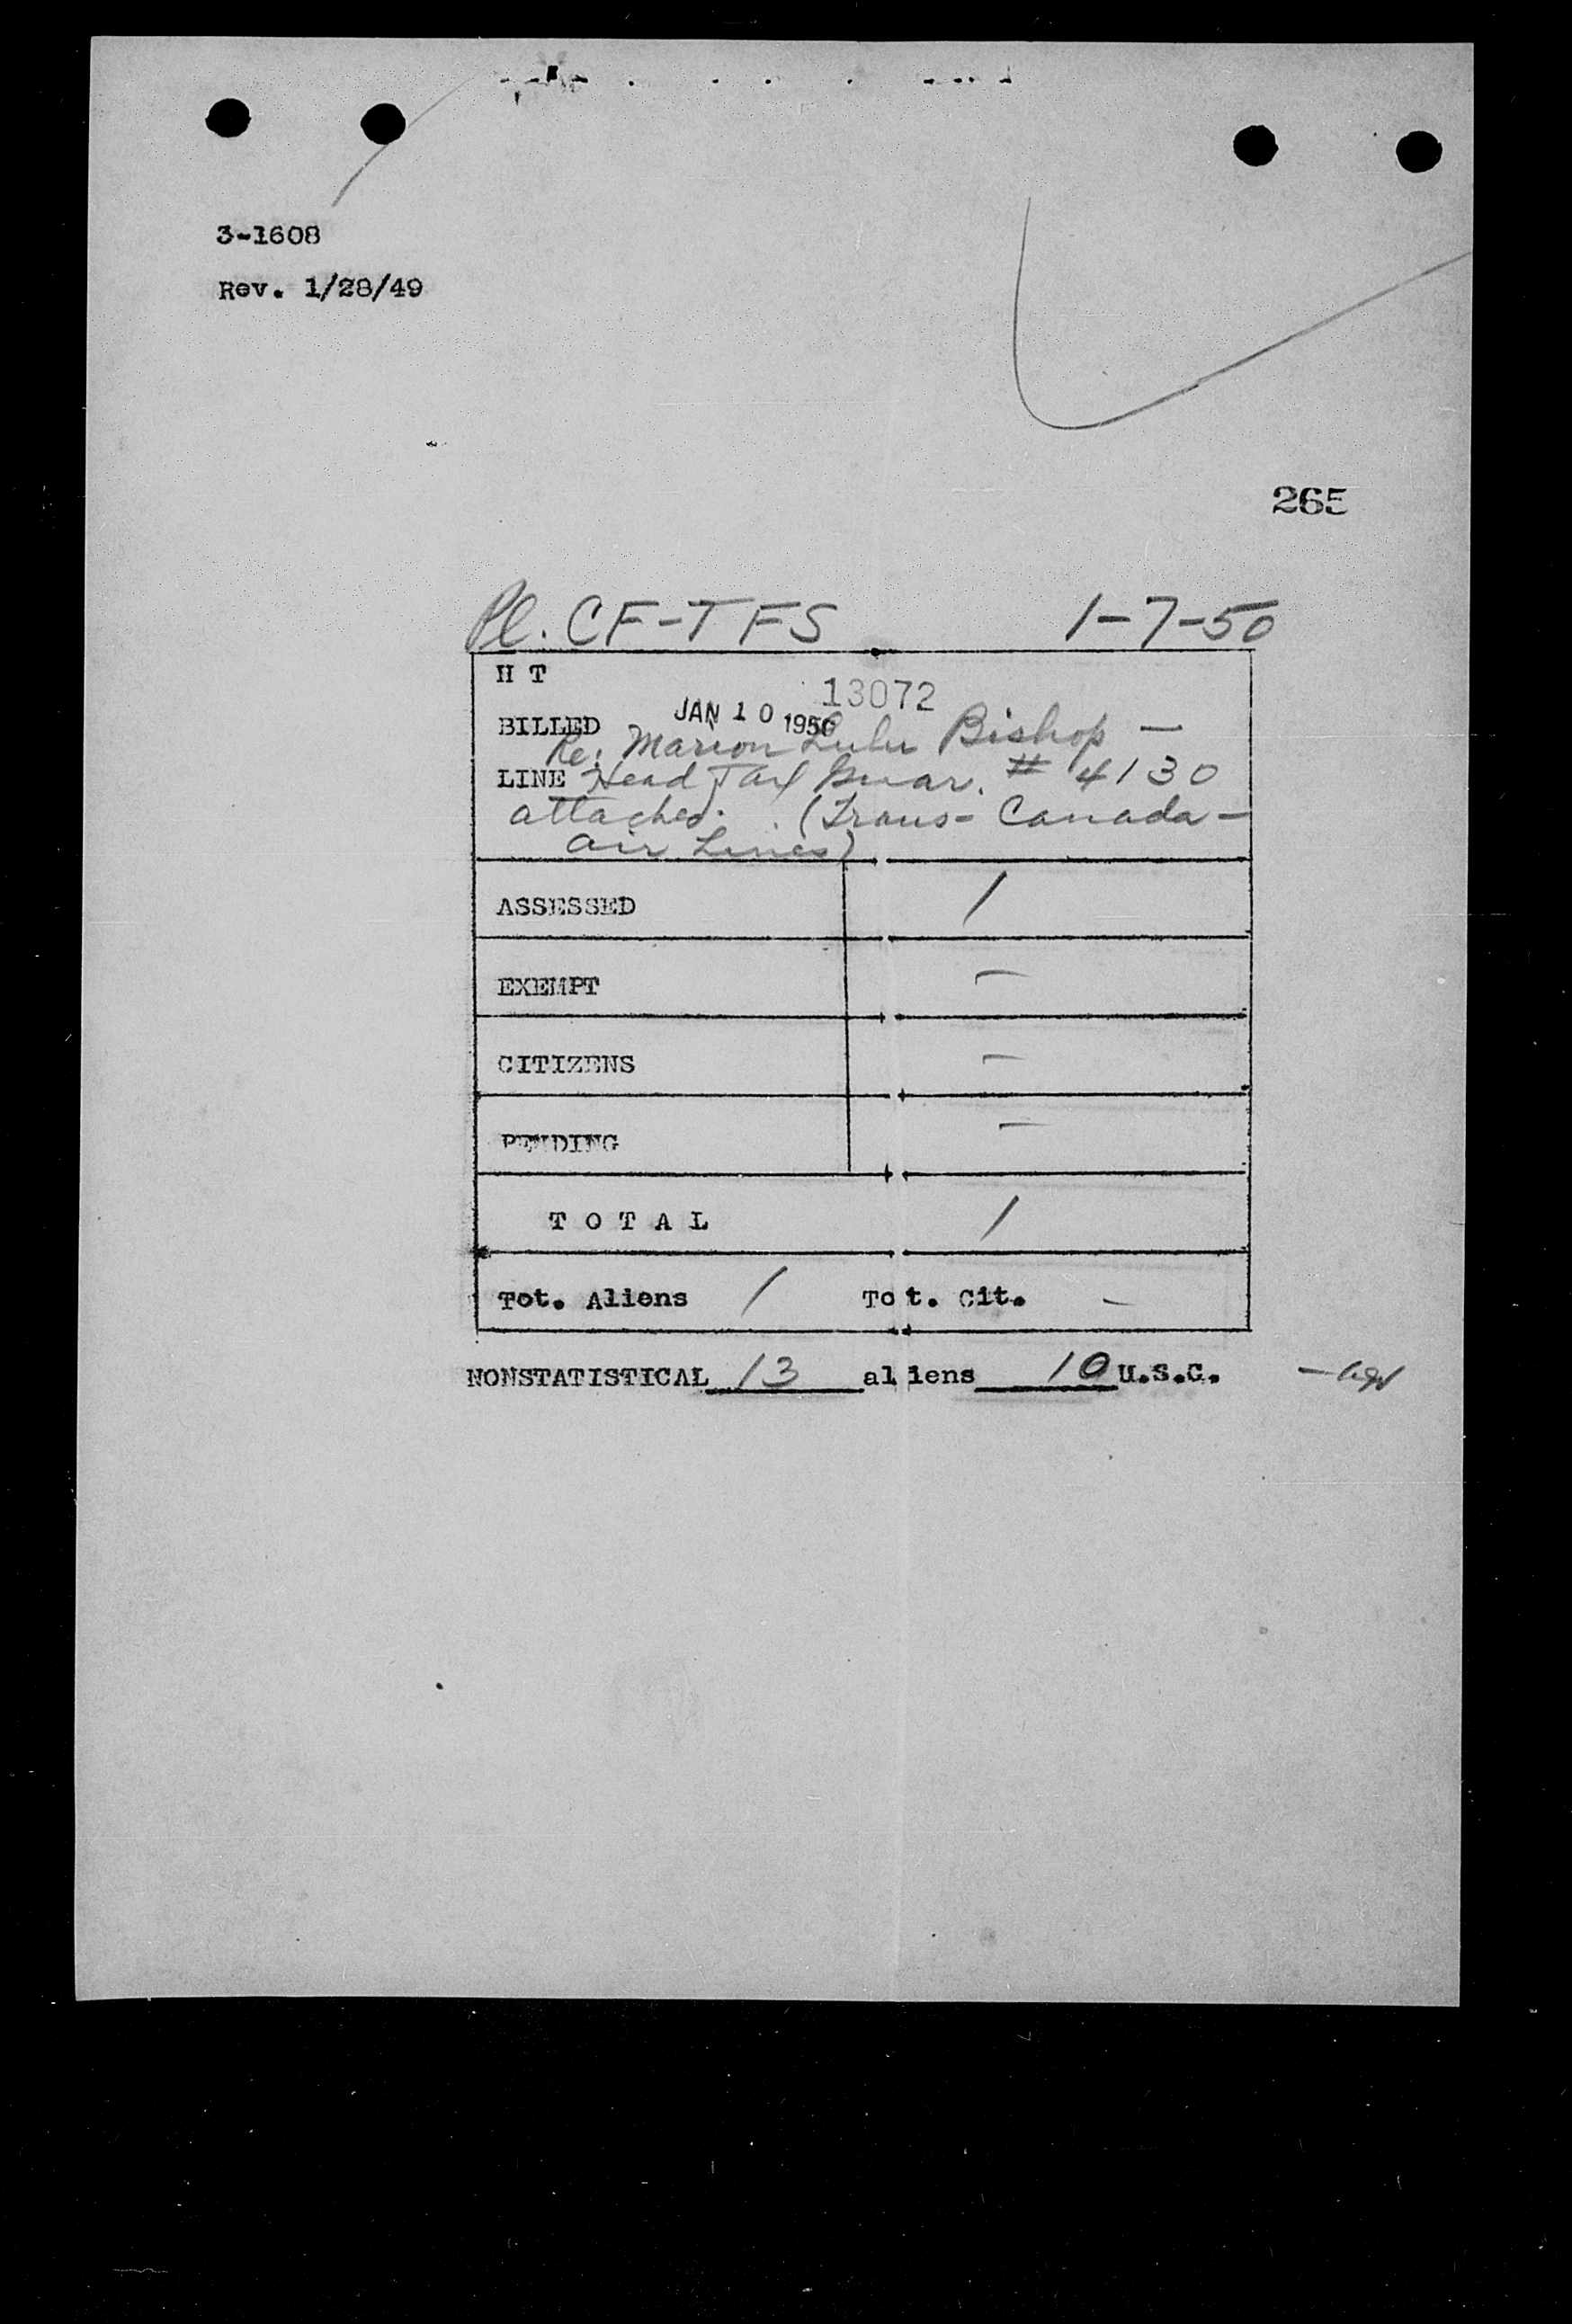 3-1608
Rev. 1/28/49
265
Pl. CF-TFS 1-7-50
H T
13072
BILLED JAN 10 1950
Re: Marion Lulu Bishop —
LINE Head Tax Guar. # 4130
attached. (Trans-Canada-
Air Lines)
ASSESSED 1
EXEMPT —
CITIZENS —
PENDING —
T O T A L 1
Tot. Aliens 1 Tot. Cit. —
NONSTATISTICAL 13 aliens 10 U.S.C.